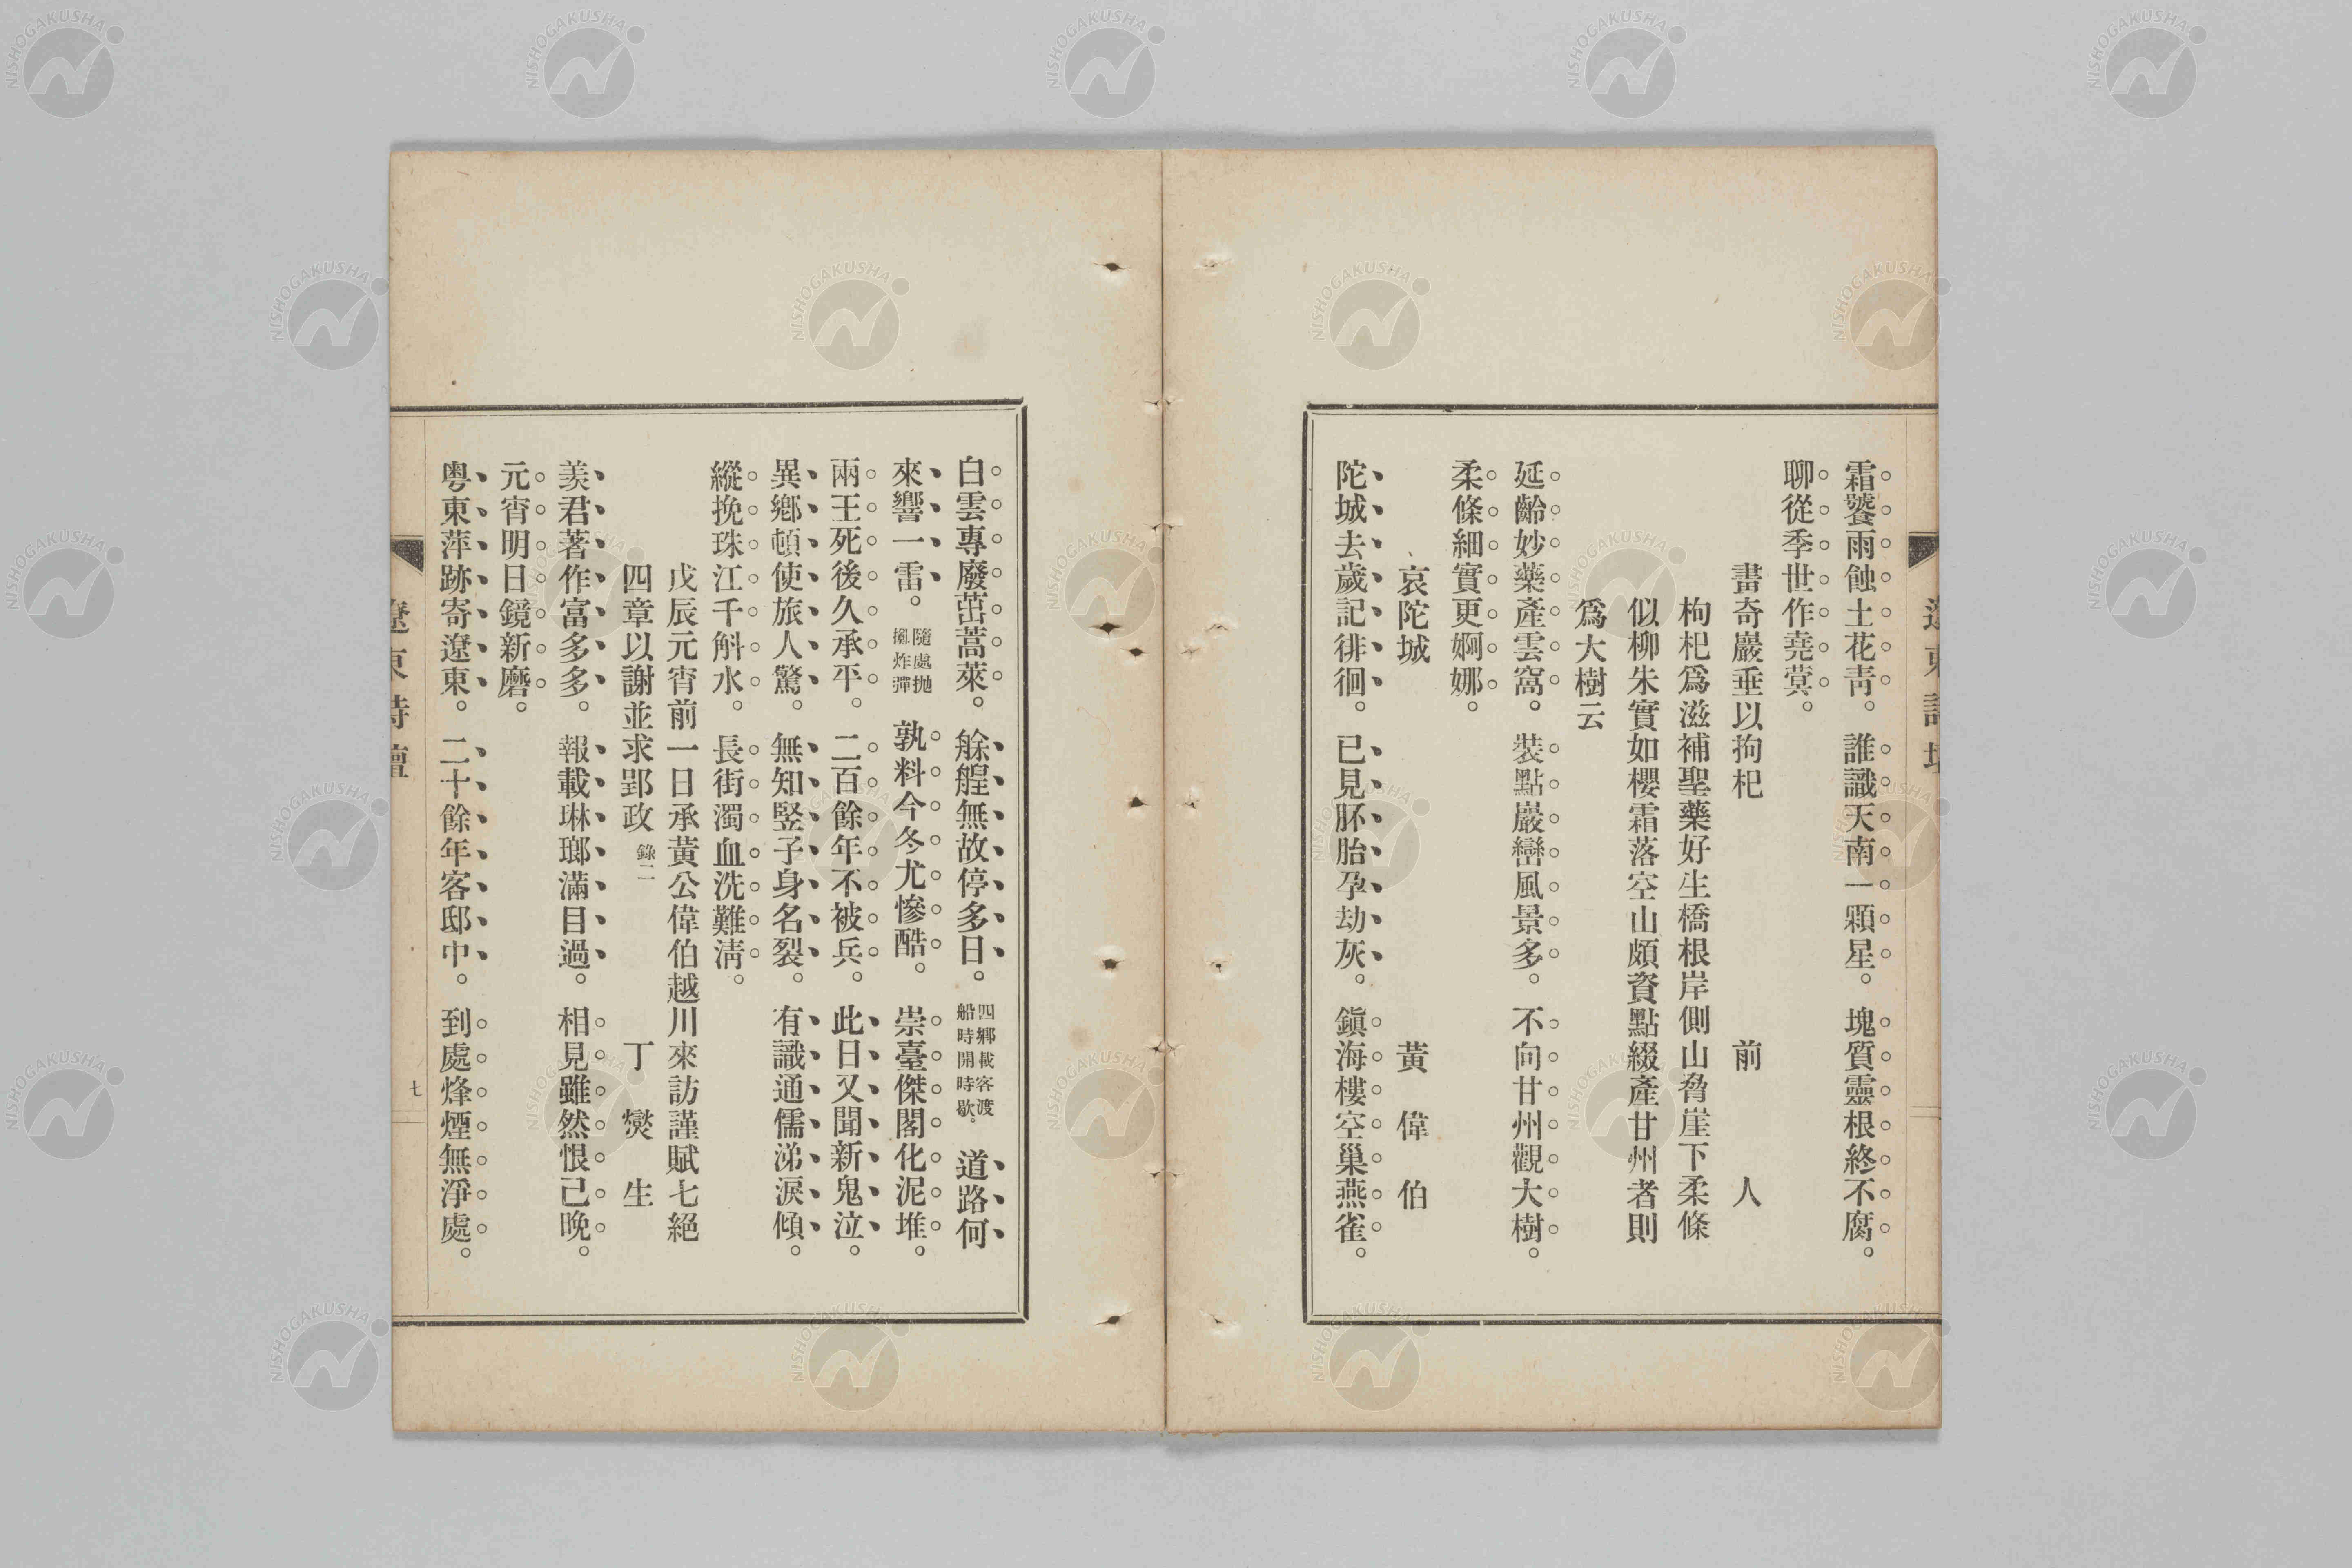 霜饕雨蝕土花靑。誰識天南一顆星。塊質靈根終不腐。
聊從季世作堯蓂。
畫奇巖垂以拘杞　前人
枸杞爲滋補聖藥好生橋根岸側山脅崖下柔條
似柳朱實如櫻霜落空山頗資點綴產甘州者則
爲大樹云
延齡妙藥產雲窩。裝點巖巒風景多。不向甘州觀大樹。
柔條細實更婀娜。
哀陀城　黃偉伯
陀城去歲記徘徊。已見胚胎孕劫灰。鎭海樓空巢燕雀。
白雲專廢茁蒿萊。艅艎無故停多日。四鄕載客渡船時開時歇。道路何
來響一雷。隨處拋擲炸彈 孰料今冬尤慘酷。崇臺傑閣化泥堆。
兩王死後久承平。二百餘年不被兵。此日又聞新鬼泣。
異鄕頓使旅人驚。無知竪子身名裂。有識通儒涕淚傾。
縱挽珠江千斛水。長街濁血洗難淸。
戊辰元宵前一日承黃公偉伯越川來訪謹賦七絕
四章以謝並求郢政 錄二　丁爕生
羨君著作富多多。報載琳瑯滿目過。相見雖然恨已晚。
元宵明日鏡新磨。
粵東萍跡寄遼東。二十餘年客邸中。到處烽煙無淨處。
遼東詩壇
七
NISHOGAKUSHA